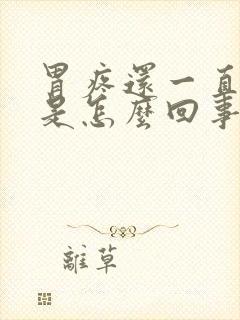 胃疼還一直
是怎麼回事
離草